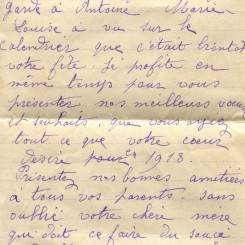 garde à Antoine Marie-
Louise à vu sur le
calendrier que c'était bientot
votre fête. Je profite en
même temps pour vous
présenter nos meilleurs voeux
et souhaits, que vous ayez
tout ce que votre coeur
désire pour 1918.
Présentez nos bonnes amitiées
à tous vos parents. sans
oublié votre chère mère
qui doit ce faire du soucé